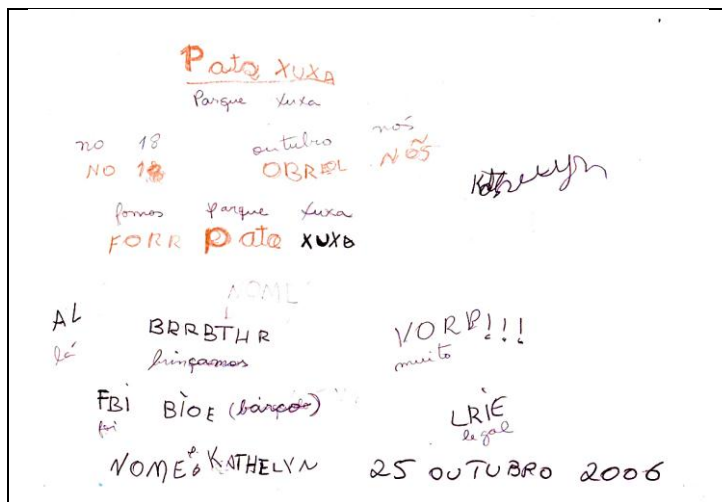 Pata XUXA
Parque Xuxa
no 18 outubro nós
NO 18 OBREL NÕS
Kathelyn
fomos parque xuxa
FORR pata XUXA
NOME
AL BRRBTHR VORP!!!
lá brinçamos muito
FBI BIOE (barço) LRIE
foi legal
NOME: KATHELYN 25 OUTUBRO 2006